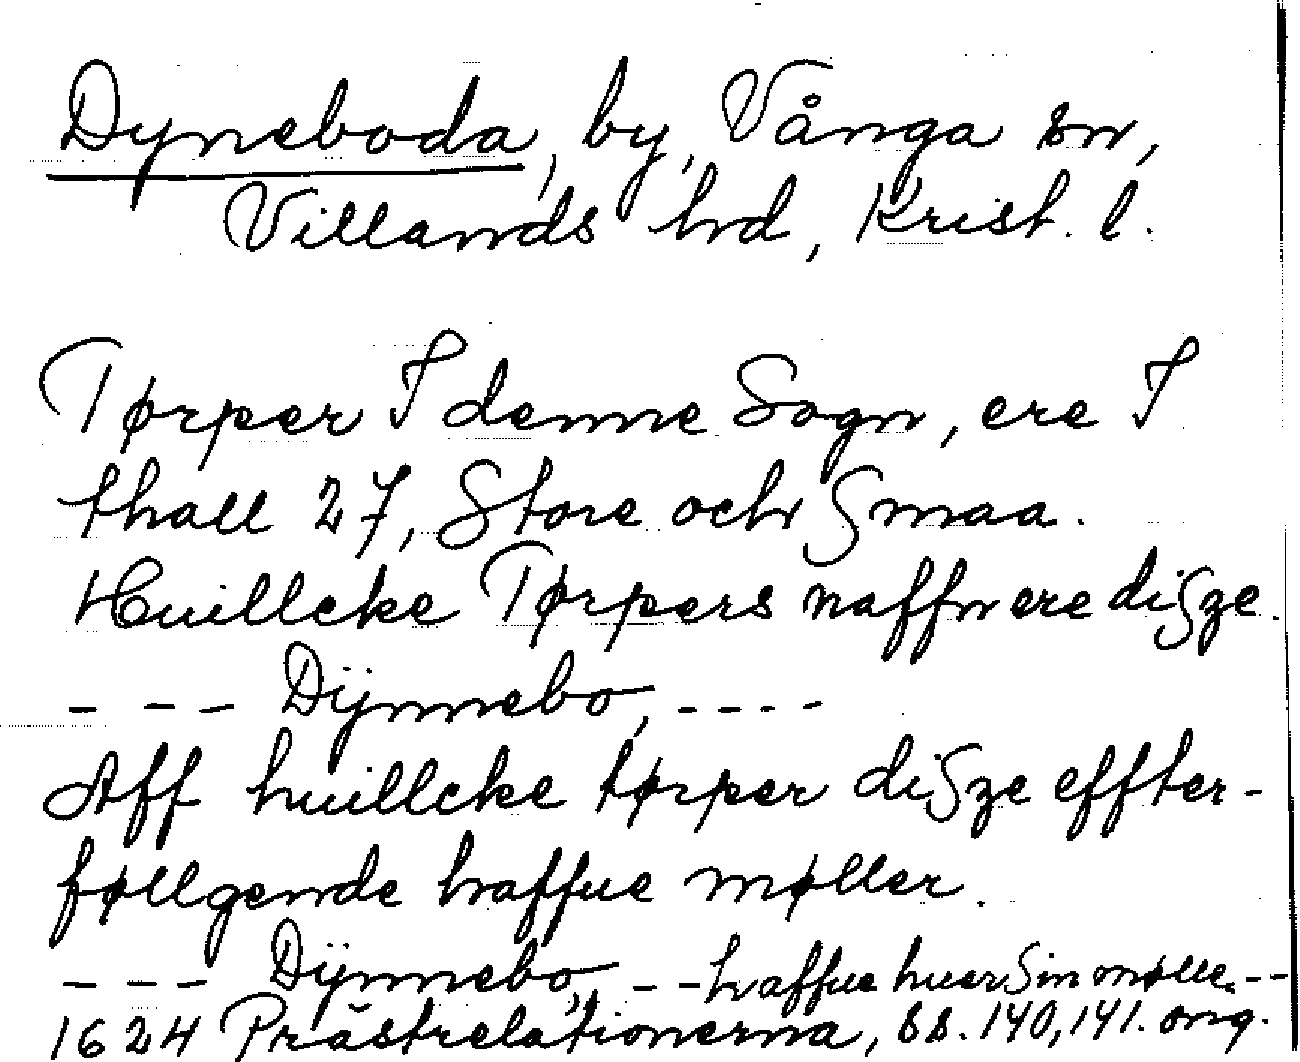 Dyneboda, by, Vånga sn,
Villands hd, Krist. l.
Tørper I denne Sogn, ere I
thall 27, Store och Smaa.
Huillcke Tørpers naffn ere disze.
- - - Dÿnnebo, - - - -
Aff huillcke tørper disze effter-
føllgende haffue møller.
- - - Dÿnnebo, - - haffue huer Sin mølle. - -
1624 Prästrelationerna, ss. 140, 141. orig.